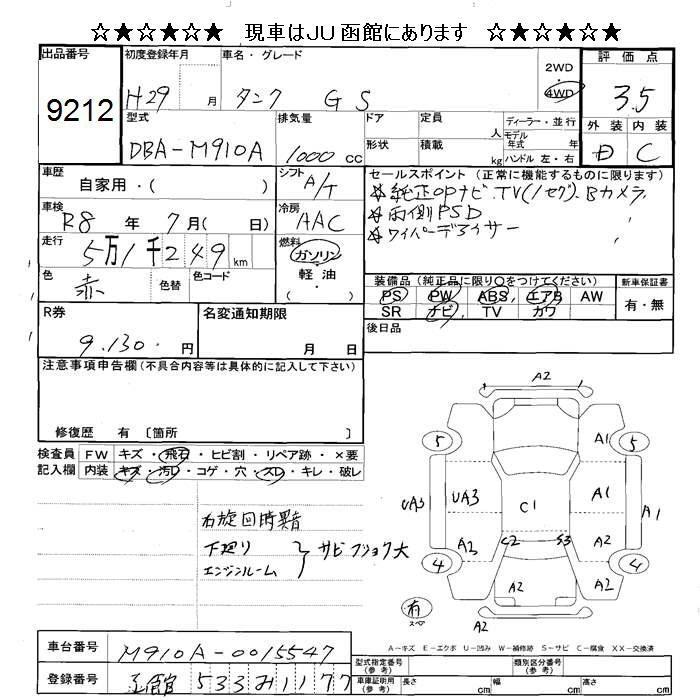 ☆★☆★☆★ 現車はJU函館にあります ☆★☆★☆★
出品番号
9212
初度登録年月
H29 月
車名・グレード
タンク GS
2WD
・
4WD
評価点
3.5
外装 内装
C
型式
DBA-M910A
排気量
1000 cc
ドア
形状
定員 人
積載 kg
ディーラー・並行
モデル年式 年式
ハンドル 左・右
車歴
自家用・( )
車検
R8 年 7月( 日)
走行
5万1千249 km
色
赤
色替
色コード
シフト
A/T
冷房
AAC
燃料
ガソリン
・
軽油
・
( )
セールスポイント (正常に機能するものに限ります)
☆純正OPナビ、TV(1セグ)、Bカメラ、
☆両側PSD
☆ワイパーデアイサー
装備品 (純正品に限り○をつけてください)
PS PW ABS エアB AW
SR ナビ TV カワ
新車保証書
有・無
後日品
R券
9,130 円
名変通知期限
月 日
注意事項申告欄 (不具合内容等は具体的に記入して下さい)
修復歴 有 〔箇所 〕
検査員記入欄
FW キズ・飛石・ヒビ割・リペア跡・×要
内装 キズ・汚レ・コゲ・穴・スレ・キレ・破レ
右旋回時異音
下廻り
エンジンルーム
} サビフショク大
A2
5 A1 5
UA3 UA3 C1 A1 A1
A2 C2 S3 A2
4 A2 A2 4
有
スペア
A2
A-キズ E-エクボ U-凹み W-補修跡 S-サビ C-腐食 XX-交換済
車台番号
M910A-0015547
登録番号
函館 533 み 1177
型式指定番号 (参考)
類別区分番号 (参考)
車庫証明用 (参考)
長さ cm
幅 cm
高さ cm